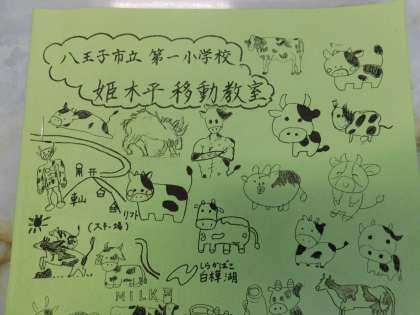 八王子市立 第一小学校
姫木平 移動教室
車山
リフト
(スキー場)
しらかばこ
白樺湖
MILK